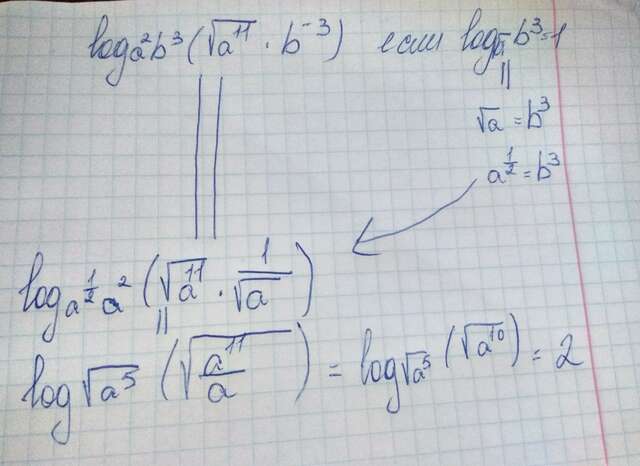 log_{a²b³}(√a¹¹ · b⁻³) если log_{√a} b³=1
||
√a = b³
a^{1/2} = b³
log_{a^{1/2}a²}(√a¹¹ · 1/√a)
||
log_{√a⁵}(√(a¹¹/a)) = log_{√a⁵}(√a¹⁰) = 2